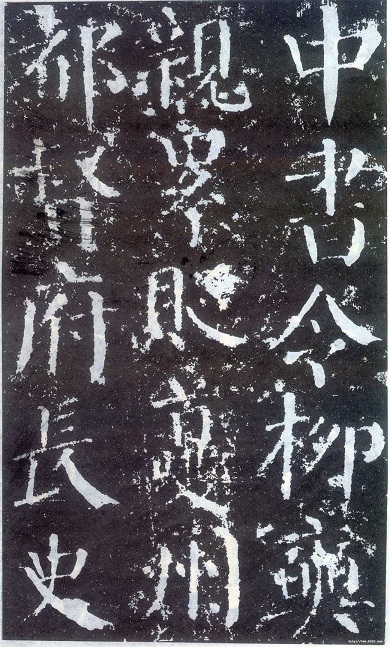 中書令柳奭
親累貶夔州
都督府長史